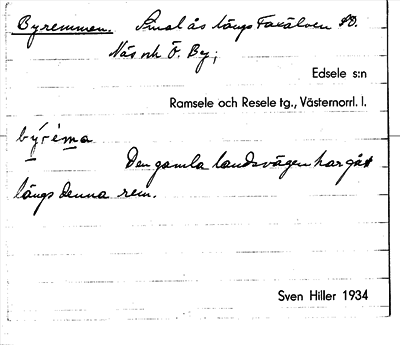 Byremmen. Smal ås längs Faxälven SO.
Näs och Ö. By;
Edsele s:n
Ramsele och Resele tg., Västernorrl. l.
býrèma
Den gamla landsvägen har gått
längs denna rem.
Sven Hiller 1934